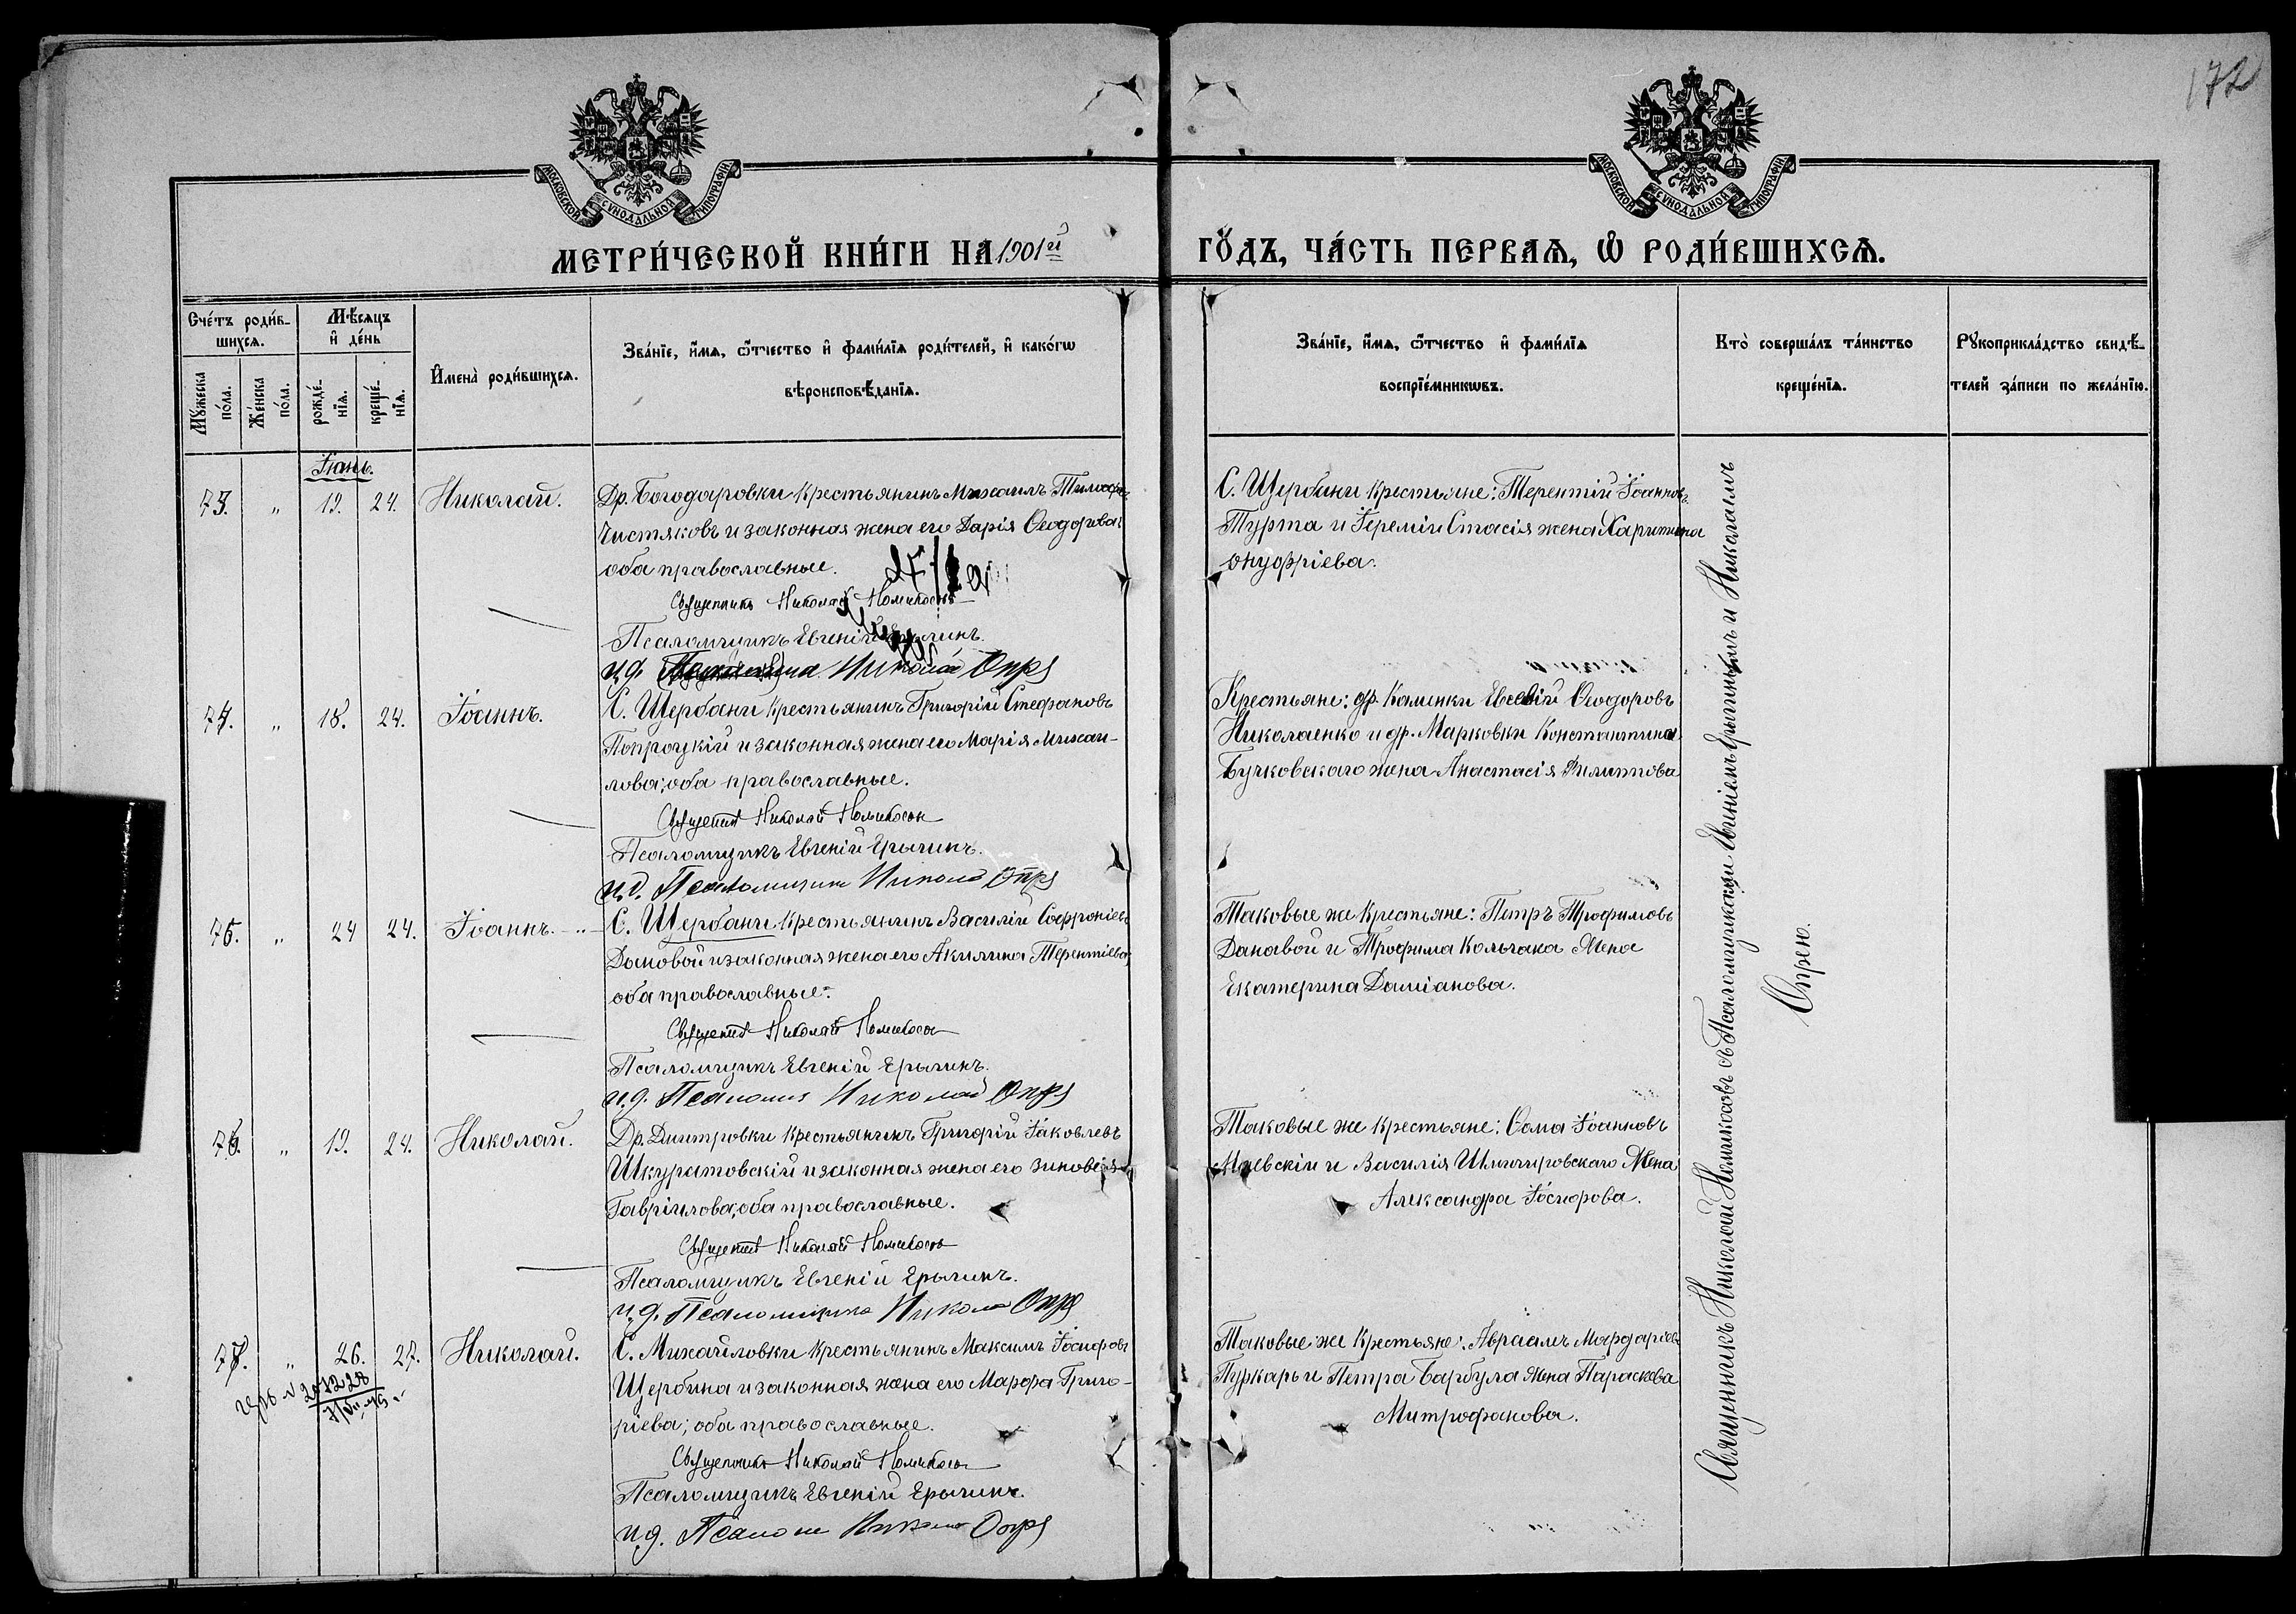 172
МОСКОВСКОЙ СУНОДАЛЬНОЙ ТИПОГРАФІИ
МОСКОВСКОЙ СУНОДАЛЬНОЙ ТИПОГРАФІИ
МЕТРИ́ЧЕСКОЙ КНИ́ГИ НА 1901й ГО́ДЪ, ЧА́СТЬ ПЕРВАѦ, Ѡ РОДИ́ВШИХСѦ.
Сче́тъ роди́в-
шихсѧ.
Мꙋжеска по́ла.
Же́нска по́ла.
Мѣ́сѧцъ
и҆ де́нь
рожде́-
нїѧ.
креще́-
нїѧ.
И҆мена̀ роди́вшихсѧ.
Зва́нїе, и҆́мѧ, ѻ҆́тчество и҆ фами́лїѧ роди́телей, и҆ како́гѡ
вѣроисповѣ́данїѧ.
Зва́нїе, и҆́мѧ, ѻ҆́тчество и҆ фами́лїѧ
воспрїе́мникѡвъ.
Кто̀ соверша́лъ та́инство
креще́нїѧ.
Рꙋкоприкла́дство свидѣ́-
телей за́писи по жела́нїю.
Іюнь.
73. „ 19. 24. Николай.
Др. Богодаровки крестьянинъ Михаилъ
Чистяковъ и законная жена его Дарія Ѳеодорова;
оба православные.
Священникъ Николай Номикосовъ
Псаломщикъ Евгеній Ерыгинъ.
и.д. Николай Опря
С. Щербани крестьяне: Терентій Іоанновъ
Турта и Іереміи Стасія жена Харитина
Онуфріева.
74. „ 18. 24. Іоаннъ.
С. Щербани крестьянинъ Григорій Стефановъ
Попроцкій и законная жена его Марія Михаи-
лова; оба православные.
Священник Николай Номикосов
Псаломщикъ Евгеній Ерыгинъ.
и.д. Псаломщика Николай Опря
Крестьяне: др. Каменки Евсевій Ѳеодоровъ
Николаенко и др. Марковки Константина
Бучковскаго жена Анастасія Филиппова
75. „ 24 24. Іоаннъ. „
С. Щербани крестьянинъ Василій Софроніевъ
Домовой и законная жена его Акилина Терентіева,
оба православные.
Священник Николай Номикосов
Псаломщикъ Евгеній Ерыгинъ.
и.д. Псаломщ Николай Опря
Таковые же крестьяне: Петръ Трофимовъ
и Трофима Кольчака Жена
Екатерина Даміанова.
76. „ 19. 24. Николай.
Др. Дмитровки крестьянинъ Григорій Іаковлевъ
Шкуратовскій и законная жена его Зиновія
Гавріилова, оба православные.
Священник Николай Номикосовъ
Псаломщикъ Евгеній Ерыгинъ.
и.д. Псаломщика Николай Опря
Таковые же крестьяне: Ѳома Іоанновъ
и Василія Жена
Александра Іосифова.
77. „ 26. 27. Николай.
С. Михайловки крестьянинъ Максимъ Іосифовъ
Щербина и законная жена его Марфа Григо-
ріева; оба православные.
Священникъ Николай Номикосов
Псаломщикъ Евгеній Ерыгинъ.
и.д. Псалом Николай Опря
Таковые же крестьяне: Авраамъ Мардаріевъ
Пуркарь и Петра Барбула жена Параскева
Митрофанова.
Священникъ Николай Номикосовъ съ Псаломщиками Евгеніемъ Ерыгинымъ и Николаемъ
Опрею.